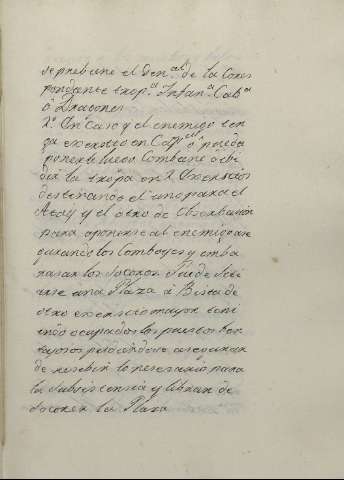 se prebiene el Gen.al de la Corres
pondiente trop.a Infan.a Cab.a
ó Dragones
2.o En Caso q.e el enemigo ten
ga exercito en Camp.a ó pueda
ponerse luego Combiene dibi
dir la tropa en 2 exercitos
destinando el uno para el
Ataq.e y el otro de Obserbacion
para oponerse al enemigo ase
gurando los Comboyes y emba
rasar los Socorros Puede Siti
arse una Plaza á Bista de
otro exercito mayor teni
endo ocupados los puestos ben
tajosos pudiendose asegurar
de recebir lo necesario para
la Subsistencia y librar de
Socorrer la Plaza